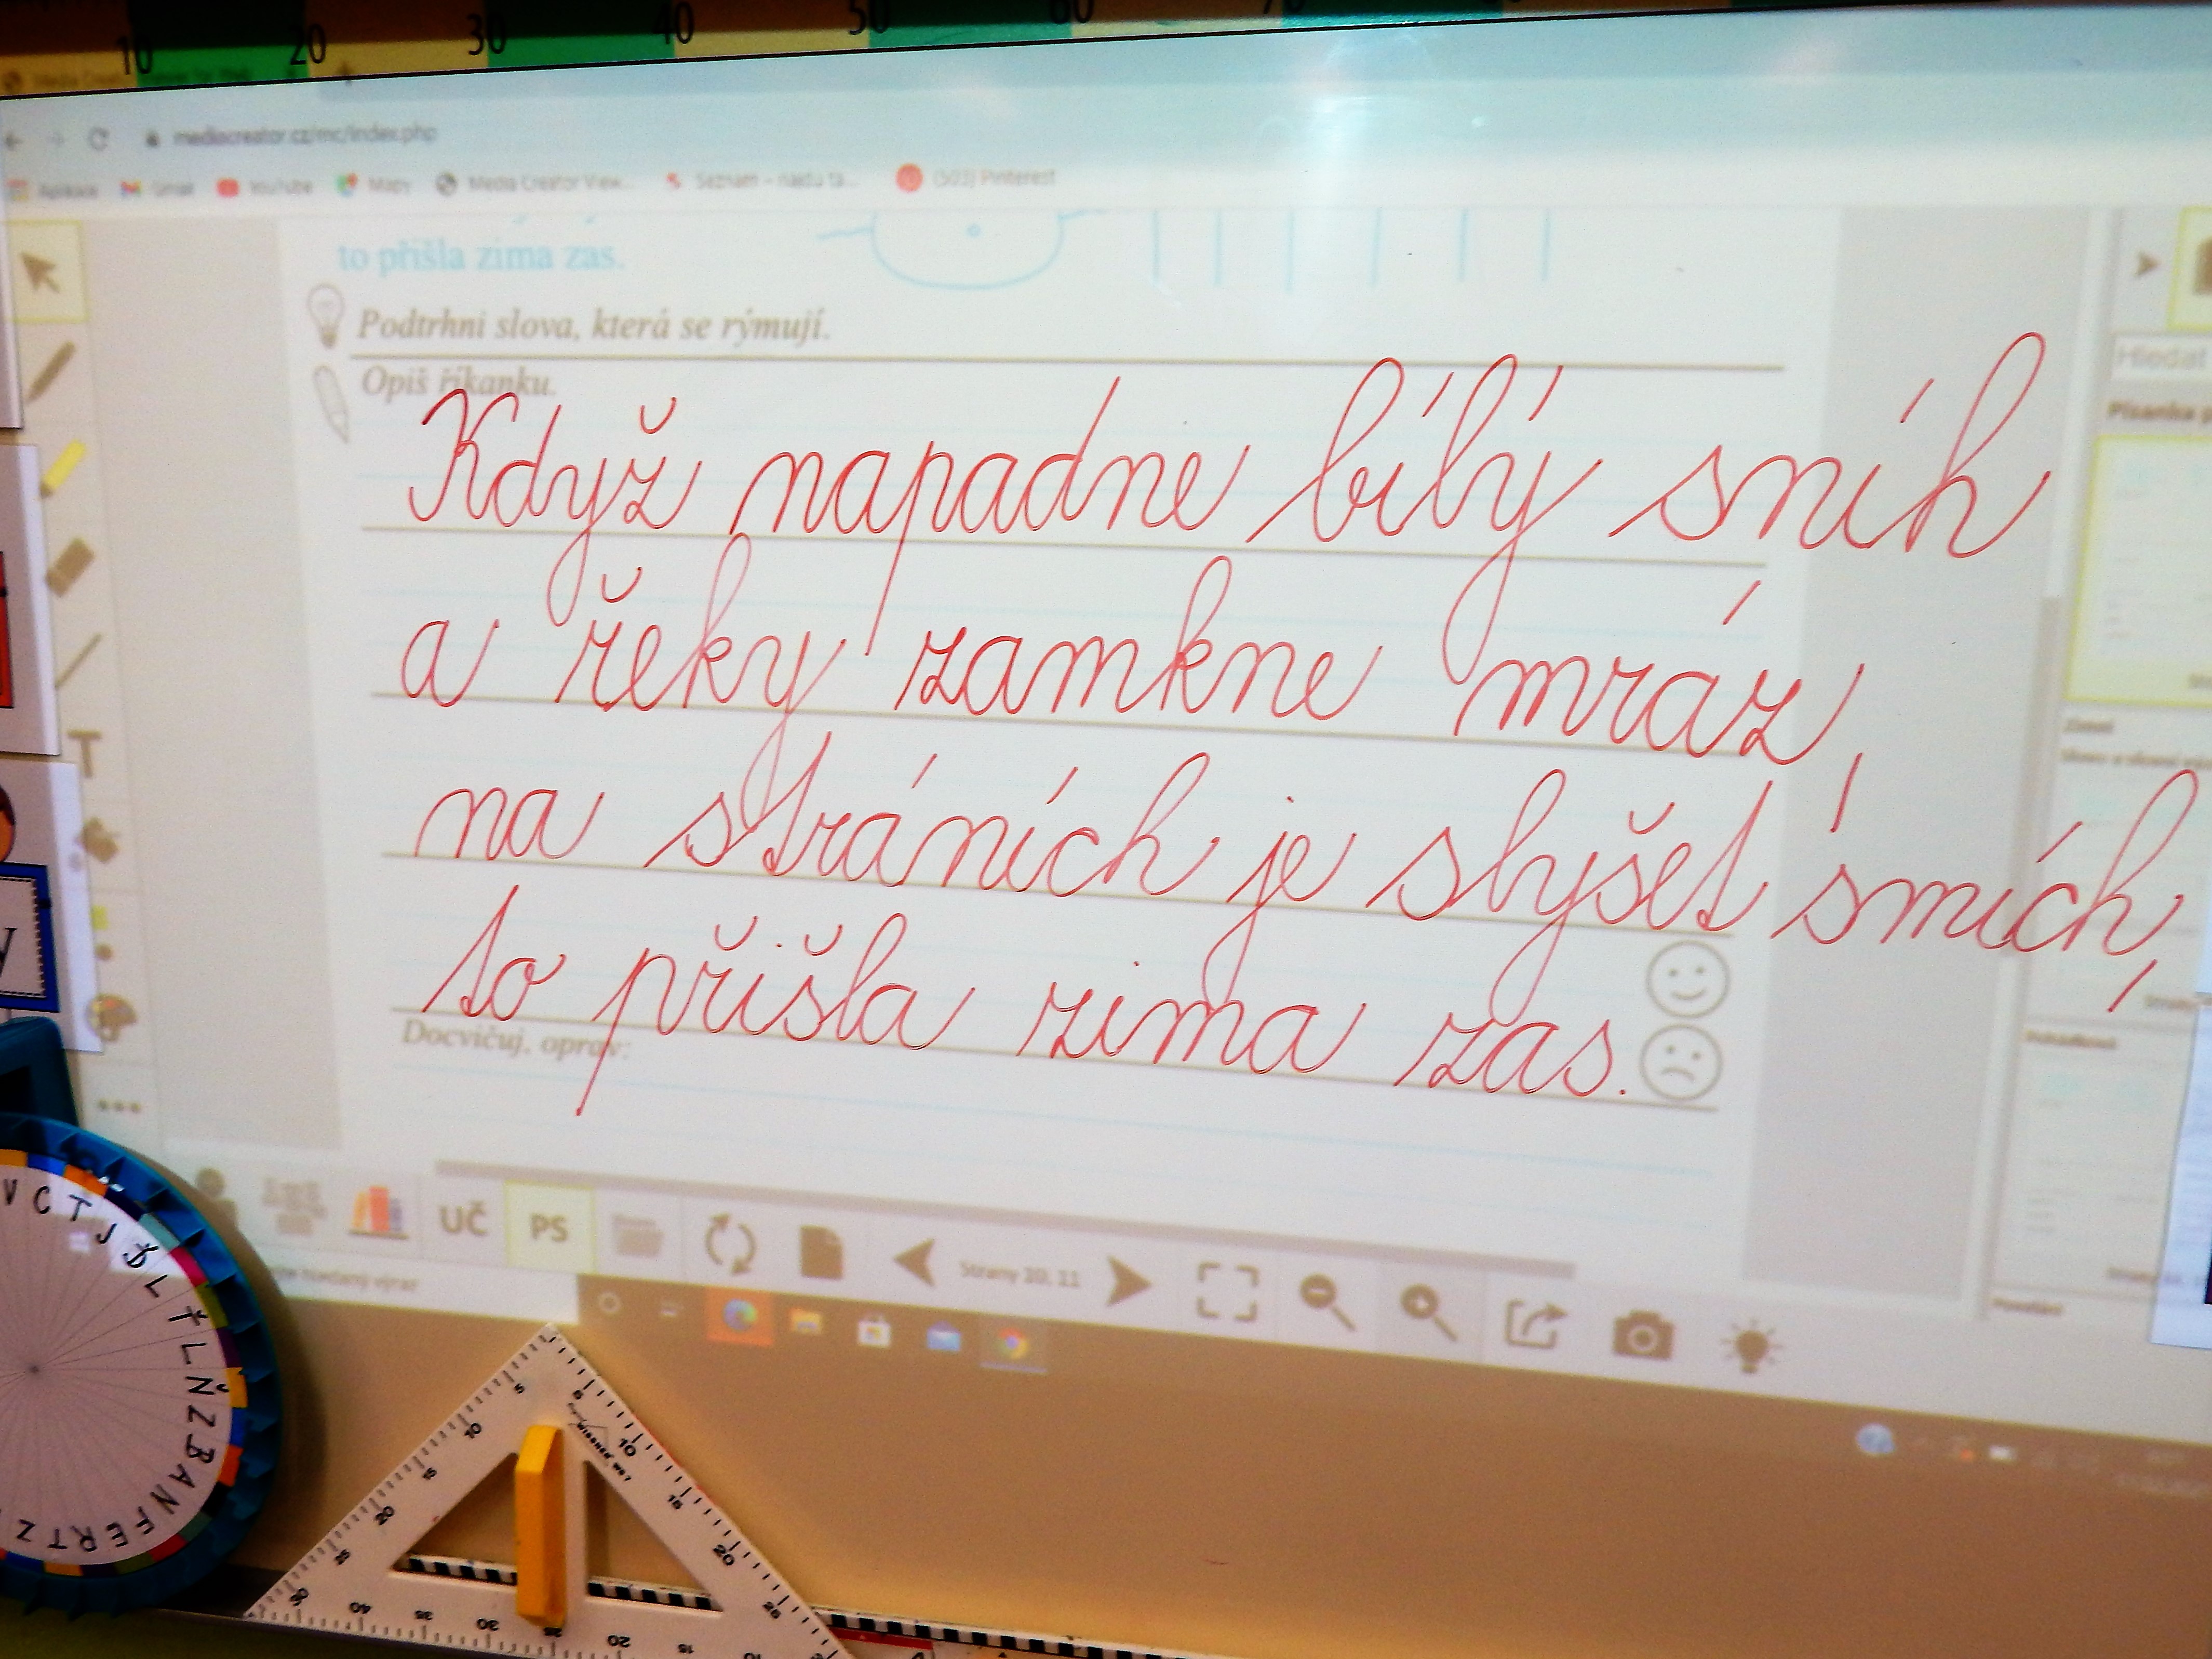 10 20 30 40 50 60
mediacreator.cz/mc/index.php
Aplikace Gmail YouTube Mapy Media Creator View... Seznam – najdu ta... (503) Pinterest
to přišla zima zas.
Podtrhni slova, která se rýmují.
Opiš říkanku.
Hledat
Když napadne bílý sníh
a řeky zamkne mráz,
na stráních je slyšet smích,
to přišla zima zas.
Docvičuj, oprav:
T
UČ PS
Strany 10, 11
V C T J Ď L Ť L Ň Z B A N F E R T Z
5 5
10 10
15 15
20 20
25 25
40 35 30 25 20 15 10